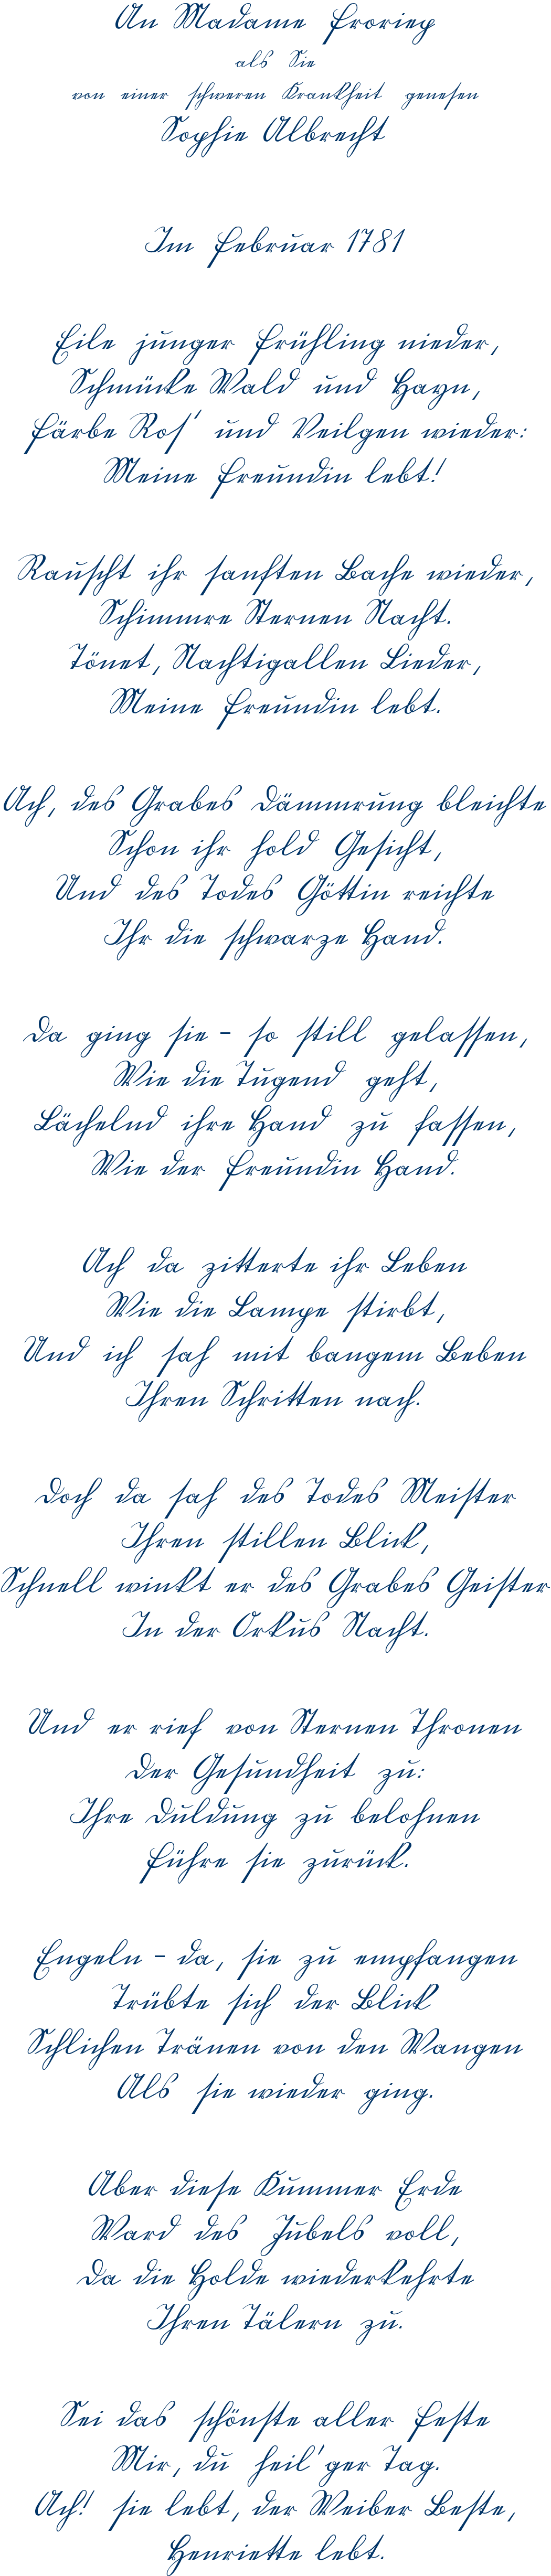 An Madame Froriep
als Sie
von einer schweren Krankheit genesen
Sophie Albrecht
Im Februar 1781
Eile junger Frühling nieder,
Schmücke Wald und Hayn,
Färbe Ros' und Veilgen wieder:
Meine Freundin lebt!
Rauscht ihr sanften Bache wieder,
Schimmre Sternen Nacht.
Tönet, Nachtigallen Lieder,
Meine Freundin lebt.
Ach, des Grabes Dämmrung bleichte
Schon ihr hold Gesicht,
Und des Todes Göttin reichte
Ihr die schwarze Hand.
Da ging sie – so still gelassen,
Wie die Tugend geht,
Lächelnd ihre Hand zu fassen,
Wie der Freundin Hand.
Ach da zitterte ihr Leben
Wie die Lampe stirbt,
Und ich sah mit bangem Beben
Ihren Schritten nach.
Doch da sah des Todes Meister
Ihren stillen Blick,
Schnell winkt er des Grabes Geister
In der Orkus Nacht.
Und er rief von Sternen Thronen
Der Gesundheit zu:
Ihre Duldung zu belohnen
Führe sie zurück.
Engeln – da, sie zu empfangen
Trübte sich der Blick
Schlichen Tränen von den Wangen
Als sie wieder ging.
Aber diese Kummer Erde
Ward des Jubels voll,
Da die Holde wiederkehrte
Ihren Tälern zu.
Sei das schönste aller Feste
Mir, du heil'ger Tag.
Ach! sie lebt, der Weiber Beste,
Henriette lebt.